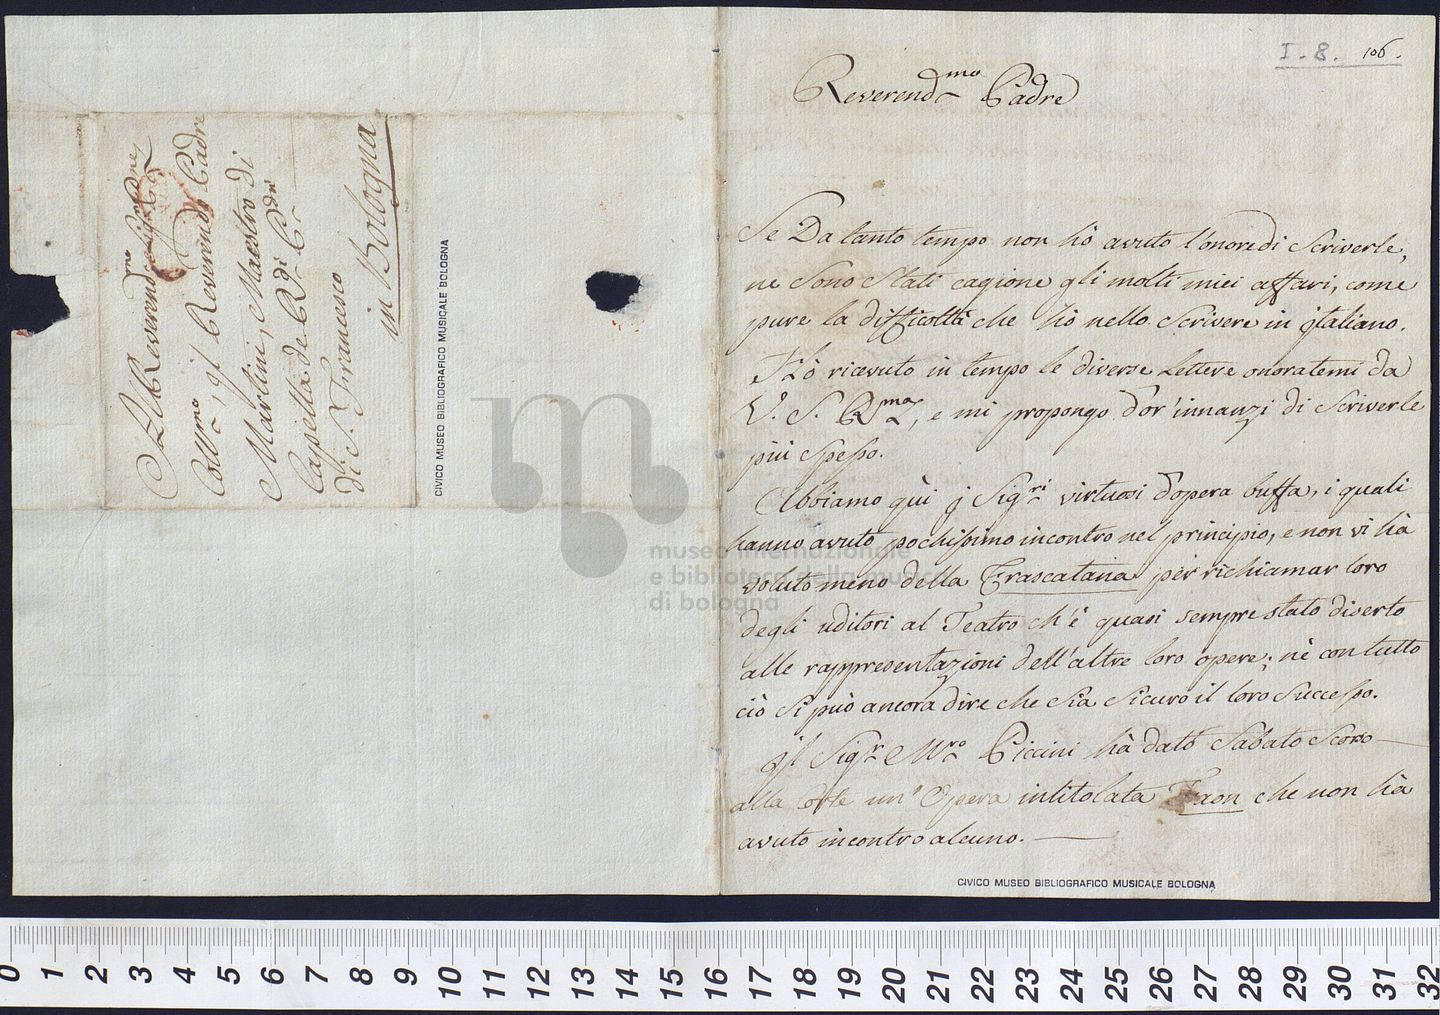 Al Reverend.mo Sig.r Sig.r P.rone
Coll.mo, jl Reverendo Padre
Martini, Maestro di
Capella de RR.di PP.dri
di S. Francesco
in Bologna
CIVICO MUSEO BIBLIOGRAFICO MUSICALE BOLOGNA
I-8. 106.
Reverend.mo Padre
Se Da tanto tempo non hò avuto l'onore di Scriverle,
ne Sono Stati cagione gli molti miei affari, come
pure la difficoltà che hò nello Scrivere in jtaliano.
Hò ricevuto in tempo le diverse Lettere onoratemi da
V. S. R.ma, e mi propongo d'or'innanzi di Scriverle
più Spesso.
Abbiamo qùi j Sig.ri virtuosi d'opera buffa, i quali
hanno avuto pochissimo incontro nel principio, e non vi hà
voluto meno della Frascatana per richiamar loro
degli uditori al Teatro ch'è quasi sempre stato diserto
alle rappresentazioni dell'altre loro opere; nè con tutto
ciò Si può ancora dire che Sia Sicuro il loro Successo.
jl Sig.r M.ro Piccini hà dato Sabato Scorso
alla Corte un' Opera intitolata Faon che non hà
avuto incontro alcuno.
CIVICO MUSEO BIBLIOGRAFICO MUSICALE BOLOGNA
museo internazionale
e biblioteca della musica
di bologna
0 1 2 3 4 5 6 7 8 9 10 11 12 13 14 15 16 17 18 19 20 21 22 23 24 25 26 27 28 29 30 31 32